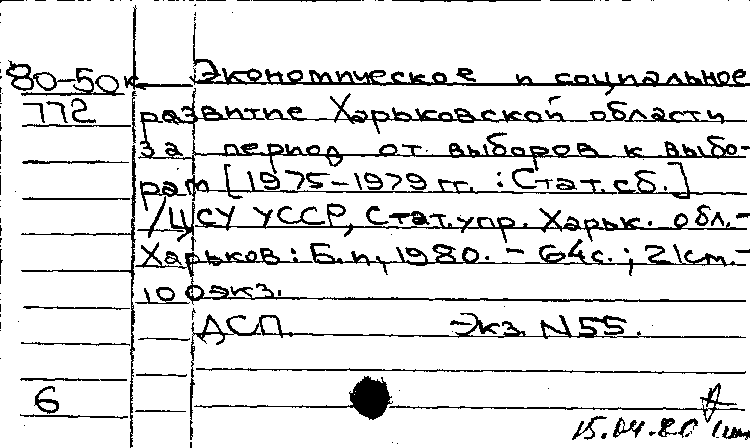 80-50к Экономическое и социальное
772 развитие Харьковской области
за период от выборов к выбо-
рам [1975-1979 гг. : Стат. сб.]
/ЦСУ УССР, Стат. упр. Харьк. обл.-
Харьков : Б.и., 1980. - 64с. ; 21см.-
100экз.
ДСП. Экз. N55.
6
15.04.80